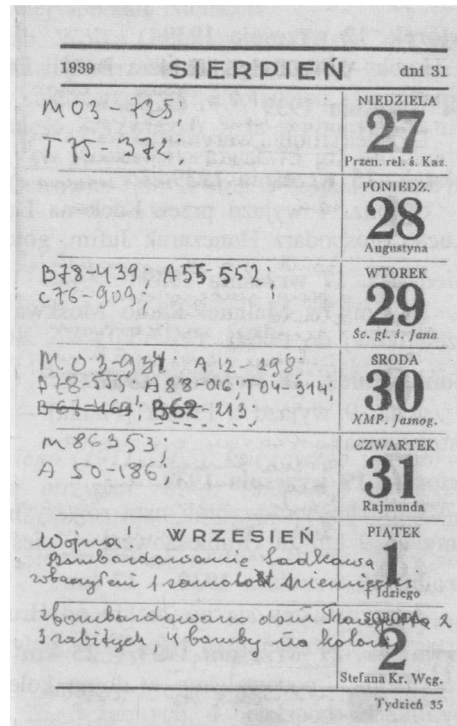 1939 SIERPIEŃ dni 31
M03-725;
T75-372
NIEDZIELA
27
Przen. rel. ś. Kaz.
PONIEDZ.
28
Augustyna
B78-439; A55-552;
C76-909;
WTOREK
29
Śc. gł. ś. Jana
M03-934; A12-298;
B78-550; A88-016; T04-314;
B67-469; B62-213;
ŚRODA
30
NMP. Jasnog.
M86353
A50-186;
CZWARTEK
31
Rajmunda
WRZESIEŃ
Wojna!
Bombardowanie Sadkowa
zobaczyłem 1 samolot niemiecki
PIĄTEK
1
† Idziego
zbombardowano dom 2
3 zabitych, 4 bomby na
SOBOTA
2
Stefana Kr. Węg.
Tydzień 35